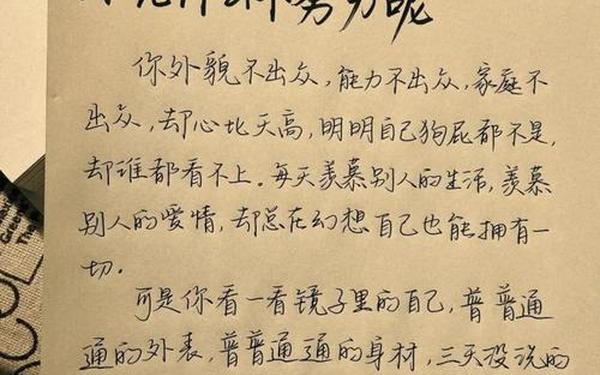 努力呢
你外貌不出众，能力不出众，家庭不
出众，却心比天高，明明自己狗屁都不是，
却谁都看不上。每天羡慕别人的生活，羡慕
别人的爱情，却总在幻想自己也能拥有一
切。
可是你看一看镜子里的自己，普普通
通的外表，普普通通的身材，三天没说的